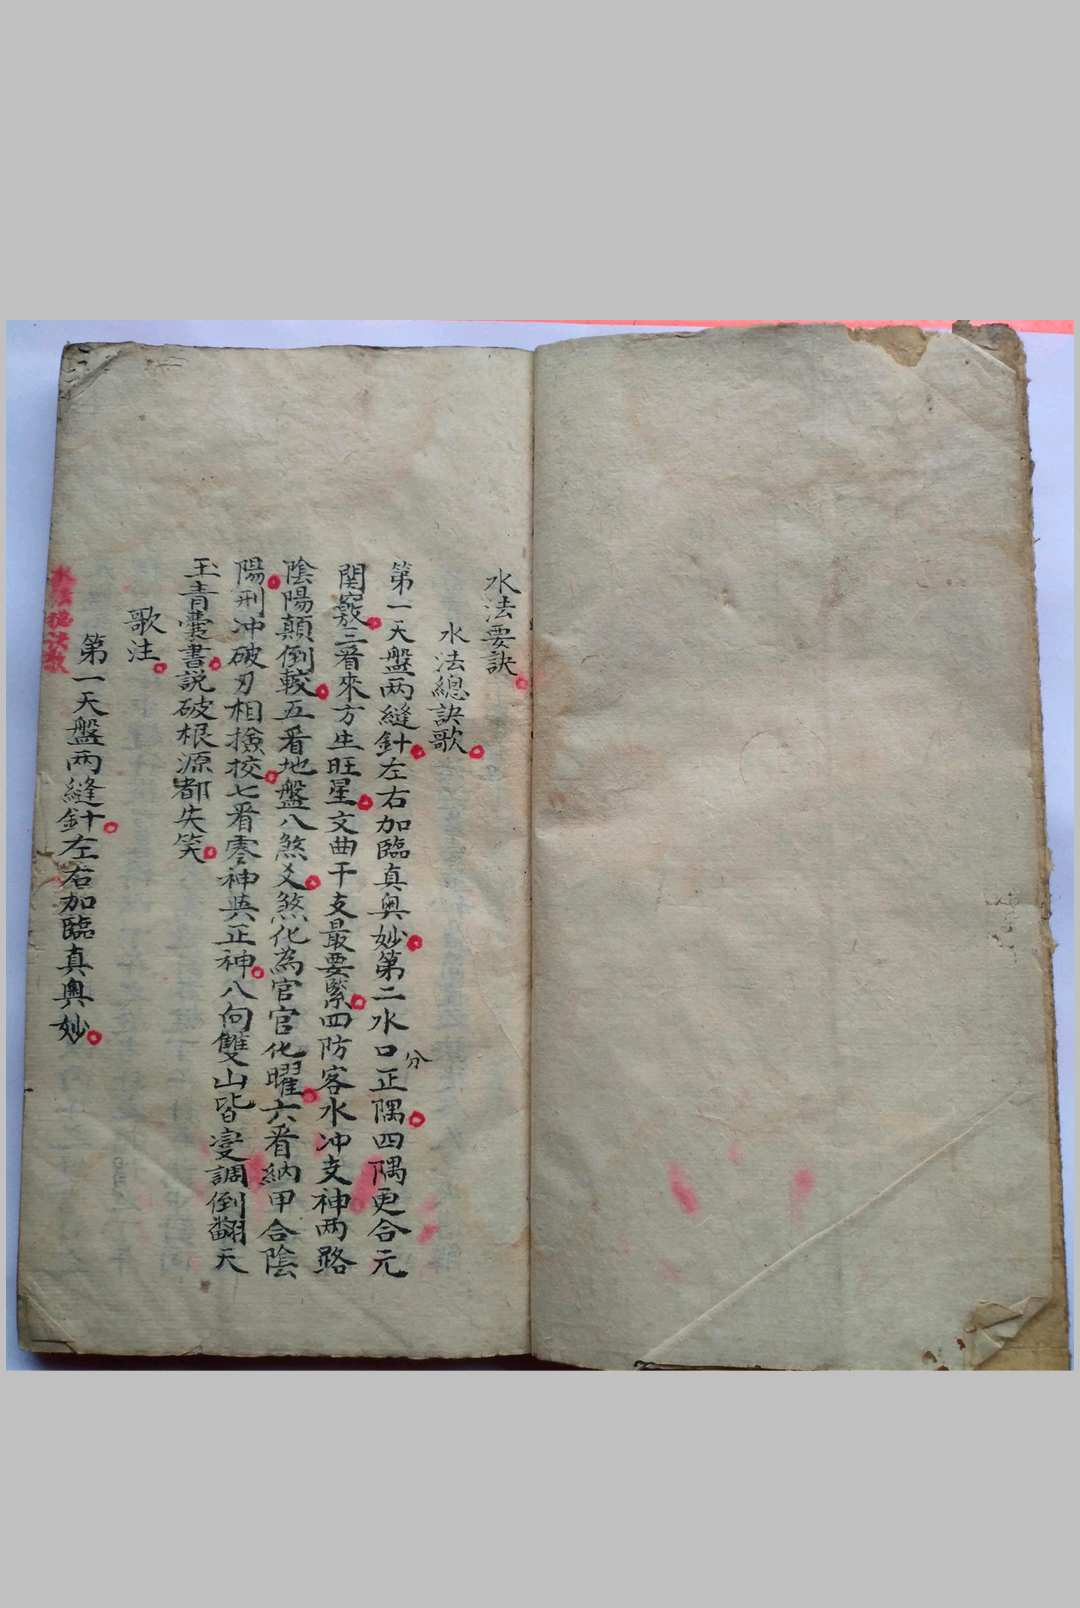 水法要訣
水法總訣歌
第一天盤两縫針左右加臨真奥妙第二水口正分隅四隅更合元
関竅三看來方生旺星文曲干支最要緊四防客水冲支神两路
陰陽顛倒較五看地盤八煞爻煞化為官官化曜六看納甲合陰
陽刑冲破刃相撿挍七看零神與正神八向雙山皆变調倒翻天
玉青囊書説破根源都失笑
歌注
第一天盤两縫針左右加臨真奥妙
水法總訣歌